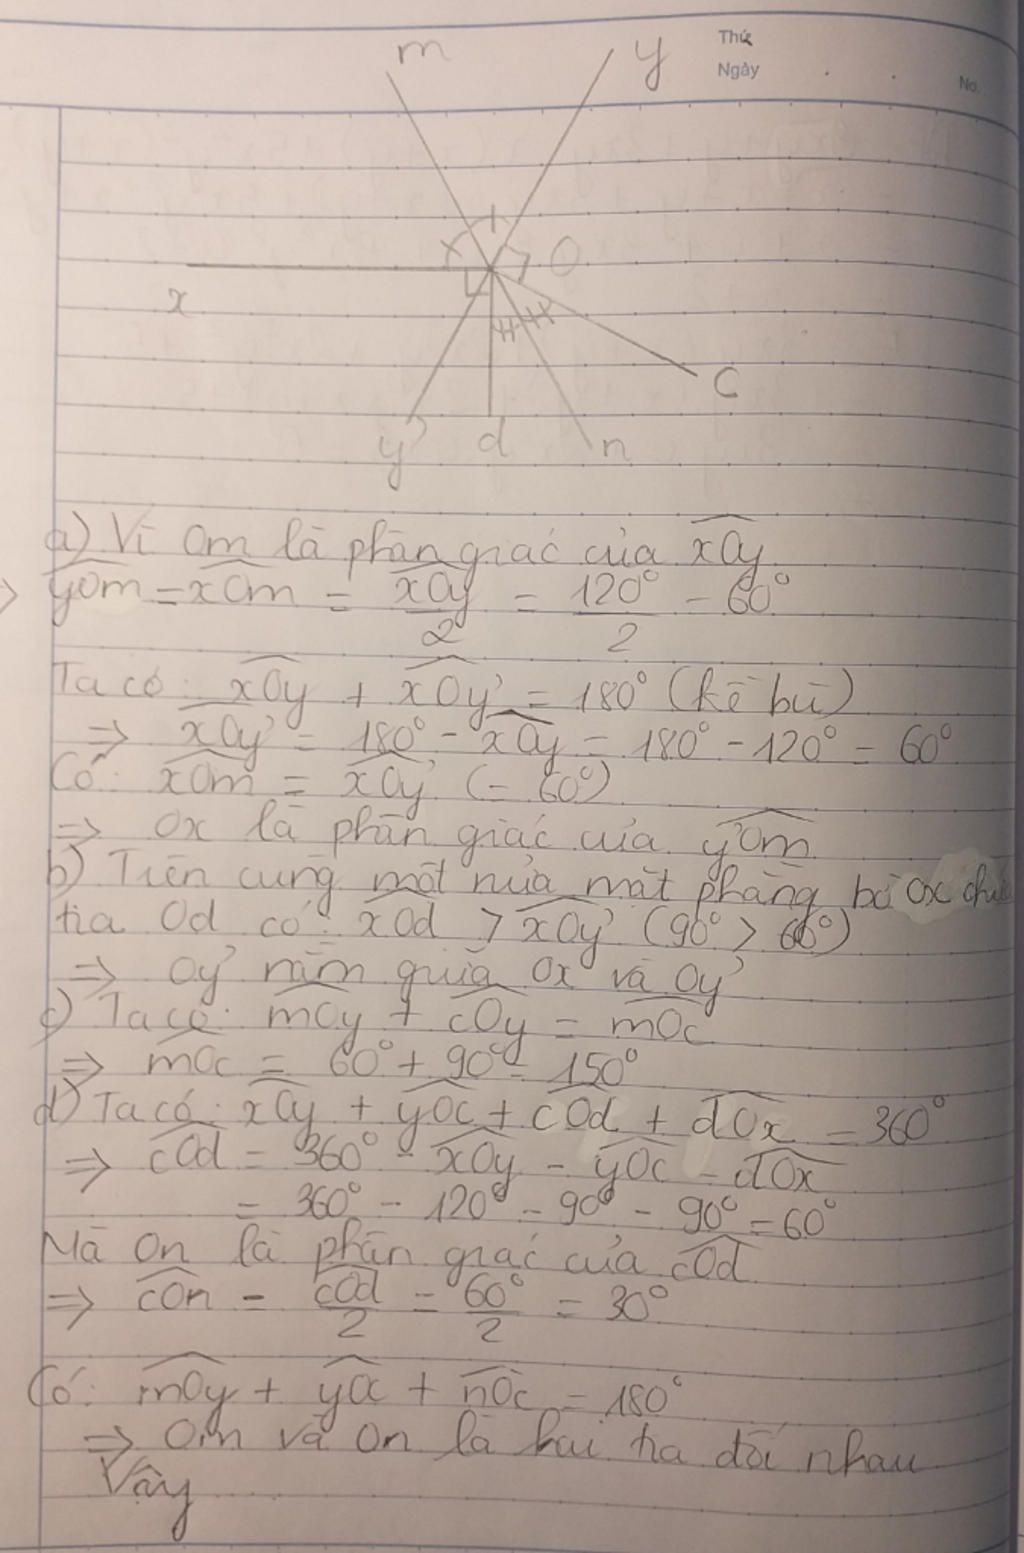 Thứ
Ngày
No.
m
y
O
x
C
y'
d
n
a) Vì Om là phân giác của xOy
=> yOm = xOm = xOy/2 = 120°/2 = 60°
Ta có: xOy + xOy' = 180° (kề bù)
=> xOy' = 180° - xOy = 180° - 120° = 60°
Có: xOm = xOy' (= 60°)
=> Ox là phân giác của y'Om
b) Trên cùng một nửa mặt phẳng bờ Ox chứa
tia Od có: xOd > xOy' (90° > 60°)
=> Oy' nằm giữa Ox và Oy'
c) Ta có: mOy + cOy = mOc
=> mOc = 60° + 90° = 150°
d) Ta có: xOy + yOc + cOd + dOx = 360°
=> cOd = 360° - xOy - yOc - dOx
= 360° - 120° - 90° - 90° = 60°
Mà On là phân giác của cOd
=> cOn = cOd/2 = 60°/2 = 30°
Có: mOy + yOc + nOc = 180°
=> Om và On là hai tia đối nhau
Vậy